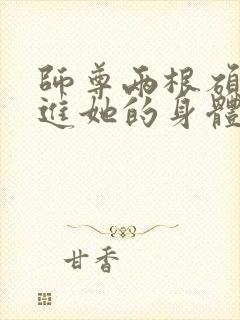 師尊兩根碩
進她的身體
甘香